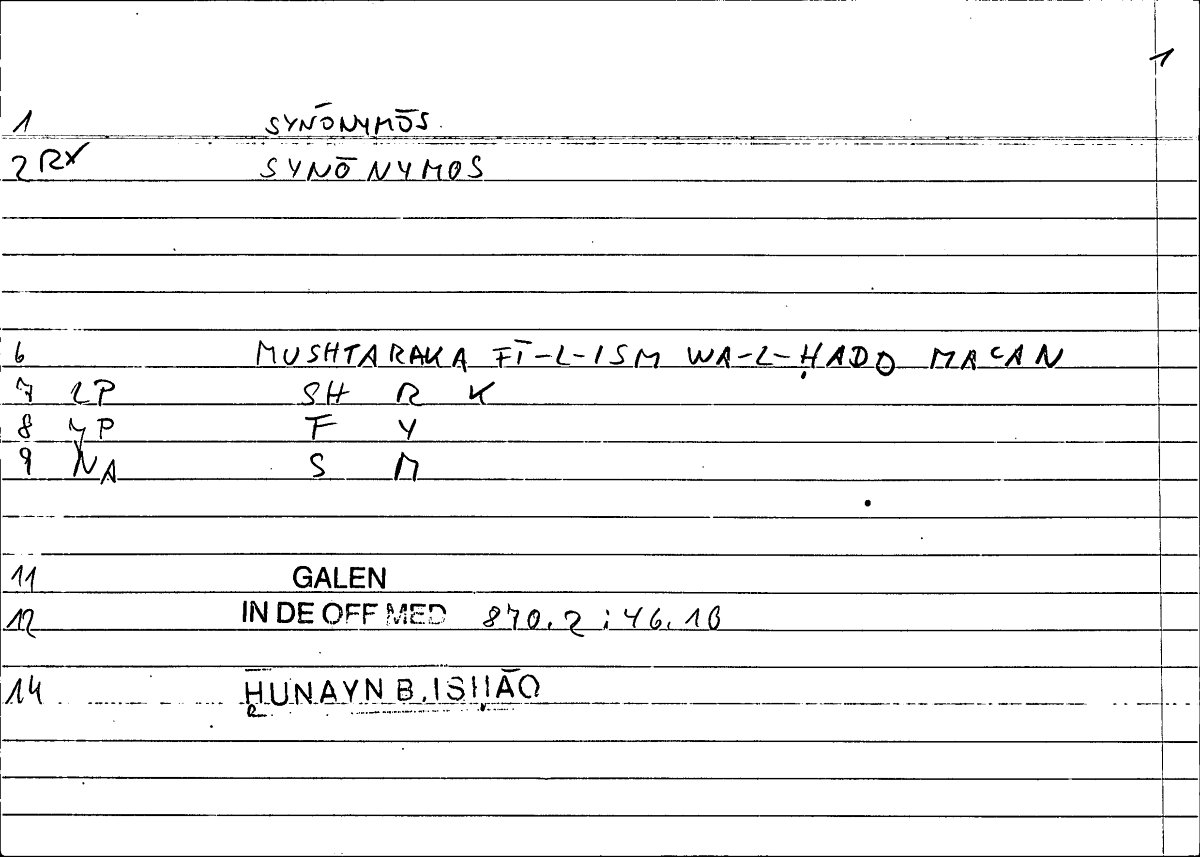 1
1 SYNŌNYMŌS
2 RX SYNŌNYMOS
6 MUSHTARAKA FĪ-L-ISM WA-L-ḤADD MAʿAN
7 LP SH R K
8 YP F Y
9 NA S M
11 GALEN
12 IN DE OFF MED 870.2 ; 46.10
14 ḤUNAYN B. ISḤĀQ